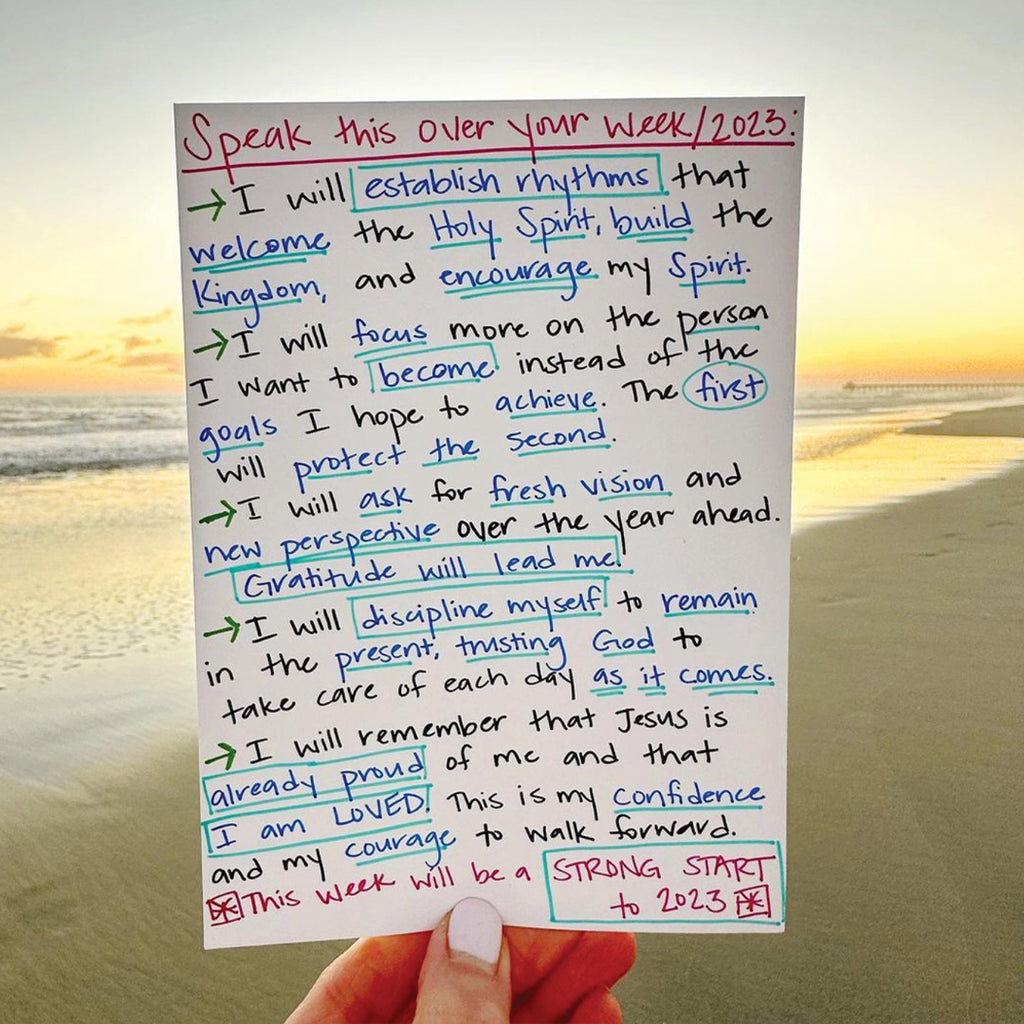 Speak this over your week/2023:
→ I will establish rhythms that
welcome the Holy Spirit, build the
Kingdom, and encourage my Spirit.
→ I will focus more on the person
I want to become instead of the
goals I hope to achieve. The first
will protect the second.
→ I will ask for fresh vision and
new perspective over the year ahead.
Gratitude will lead me!
→ I will discipline myself to remain
in the present, trusting God to
take care of each day as it comes.
→ I will remember that Jesus is
already proud of me and that
I am LOVED! This is my confidence
and my courage to walk forward.
This week will be a STRONG START
to 2023